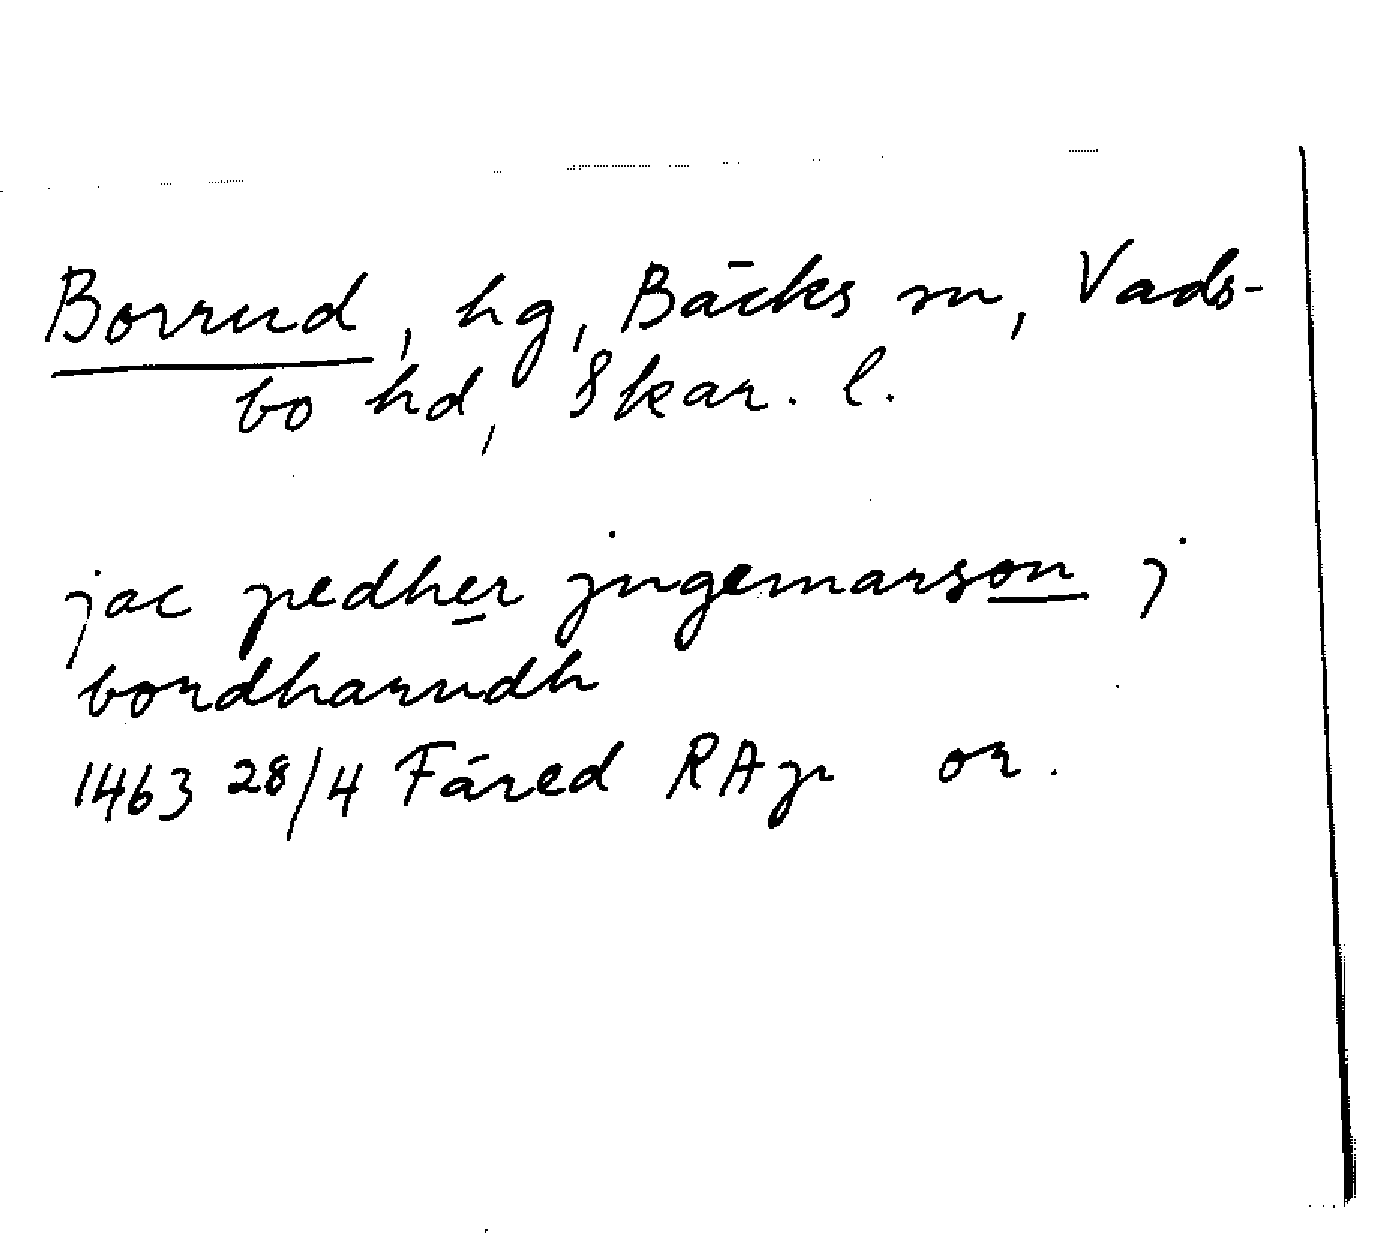 Borrud, hg, Bäcks sn, Vads-
bo hd, Skar. l.
jac pedher jngemarson j
bordharudh
1463 28/4 Fåred RAp or.